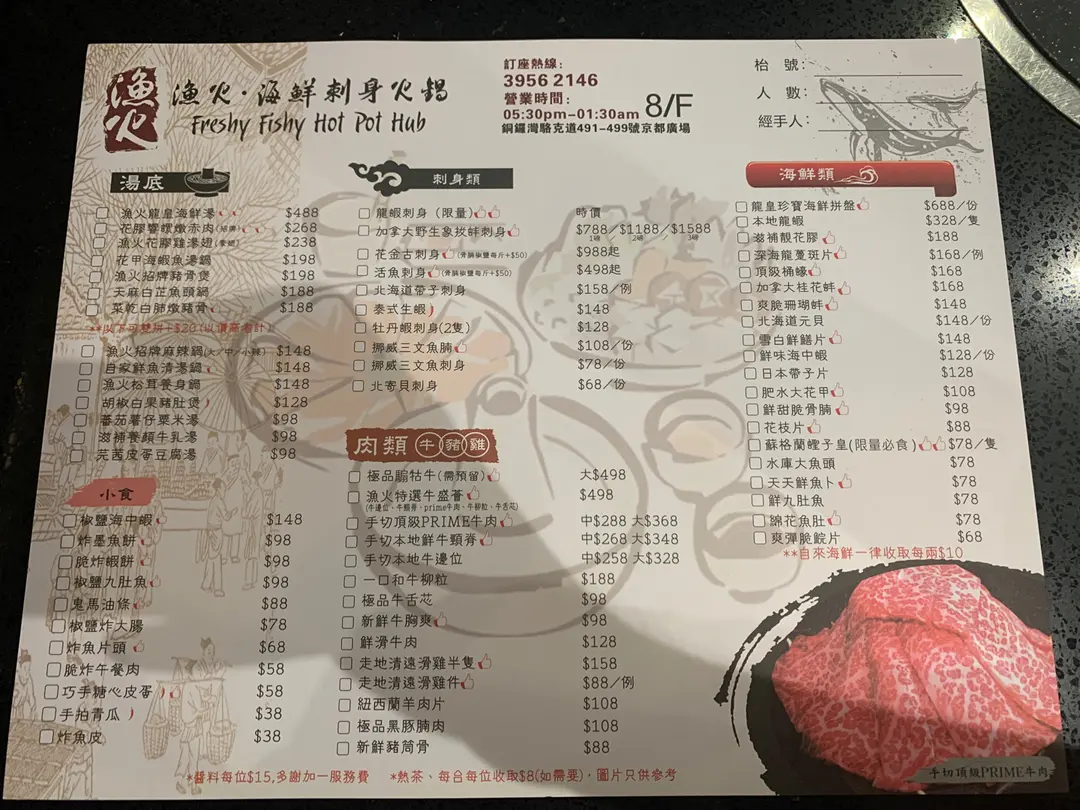 漁火
漁火·海鮮刺身火鍋
Freshy Fishy Hot Pot Hub
訂座熱線：
3956 2146
營業時間：
05:30pm-01:30am 8/F
銅鑼灣駱克道491-499號京都廣場
枱 號：
人 數：
經手人：
湯底
漁火龍皇海鮮湯 $488
花膠響螺燉赤肉 $268
漁火花膠雞湯翅 $238
花甲海蝦魚湯鍋 $198
漁火招牌豬骨煲 $198
天麻白芷魚頭鍋 $188
菜乾白肺燉豬骨 $188
漁火招牌麻辣鍋(大／中／小辣) $148
自家鮮魚清湯鍋 $148
漁火松茸養身鍋 $148
胡椒白果豬肚煲 $128
蕃茄薯仔粟米湯 $98
滋補養顏牛乳湯 $98
芫茜皮蛋豆腐湯 $98
小食
椒鹽海中蝦 $148
炸墨魚餅 $98
脆炸蝦餅 $98
椒鹽九肚魚 $98
鬼馬油條 $88
椒鹽炸大腸 $78
炸魚片頭 $68
脆炸午餐肉 $58
巧手糖心皮蛋 $58
手拍青瓜 $38
炸魚皮 $38
刺身類
龍蝦刺身 (限量) 時價
加拿大野生象拔蚌刺身 $788／$1188／$1588
1磅 2磅 3磅
花金古刺身(骨腩椒鹽每斤+$50) 988起
活魚刺身(骨腩椒鹽每斤+$50) $498起
北海道帶子刺身 $158／例
泰式生蝦 $148
牡丹蝦刺身(2隻) $128
挪威三文魚腩 $108／份
挪威三文魚刺身 $78／份
北寄貝刺身 $68／份
肉類 牛豬雞
極品騸牯牛(需預留) 大$498
漁火特選牛盛薈 $498
(牛邊位、牛頸脊、prime牛肉、牛柳粒、牛舌芯)
手切頂級PRIME牛肉 中$288 大$368
手切本地鮮牛頸脊 中$268 大$348
手切本地牛邊位 中$258 大$328
一口和牛柳粒 $188
極品牛舌芯 $98
新鮮牛胸爽 $98
鮮滑牛肉 $128
走地清遠滑雞半隻 $158
走地清遠滑雞件 $88／例
紐西蘭羊肉片 $108
極品黑豚腩肉 $108
新鮮豬筒骨 $88
海鮮類
龍皇珍寶海鮮拼盤 $688／份
本地龍蝦 $328／隻
滋補靚花膠 $188
深海龍躉斑片 $168／例
頂級桶蠔 $168
加拿大桂花蚌 $168
爽脆珊瑚蚌 $148
北海道元貝 $148／份
雪白鮮鱔片 $148
鮮味海中蝦 $128／份
日本帶子片 $128
肥水大花甲 $108
鮮甜脆骨腩 $98
花枝片 $88
蘇格蘭蟶子皇(限量必食) $78／隻
水庫大魚頭 $78
天天鮮魚卜 $78
鮮九肚魚 $78
綿花魚肚 $78
爽彈脆鯇片 $68
**自來海鮮一律收取每兩$10
手切頂級PRIME牛肉
*醬料每位$15,多謝加一服務費 *熱茶、每台每位收取$8(如需要)，圖片只供參考